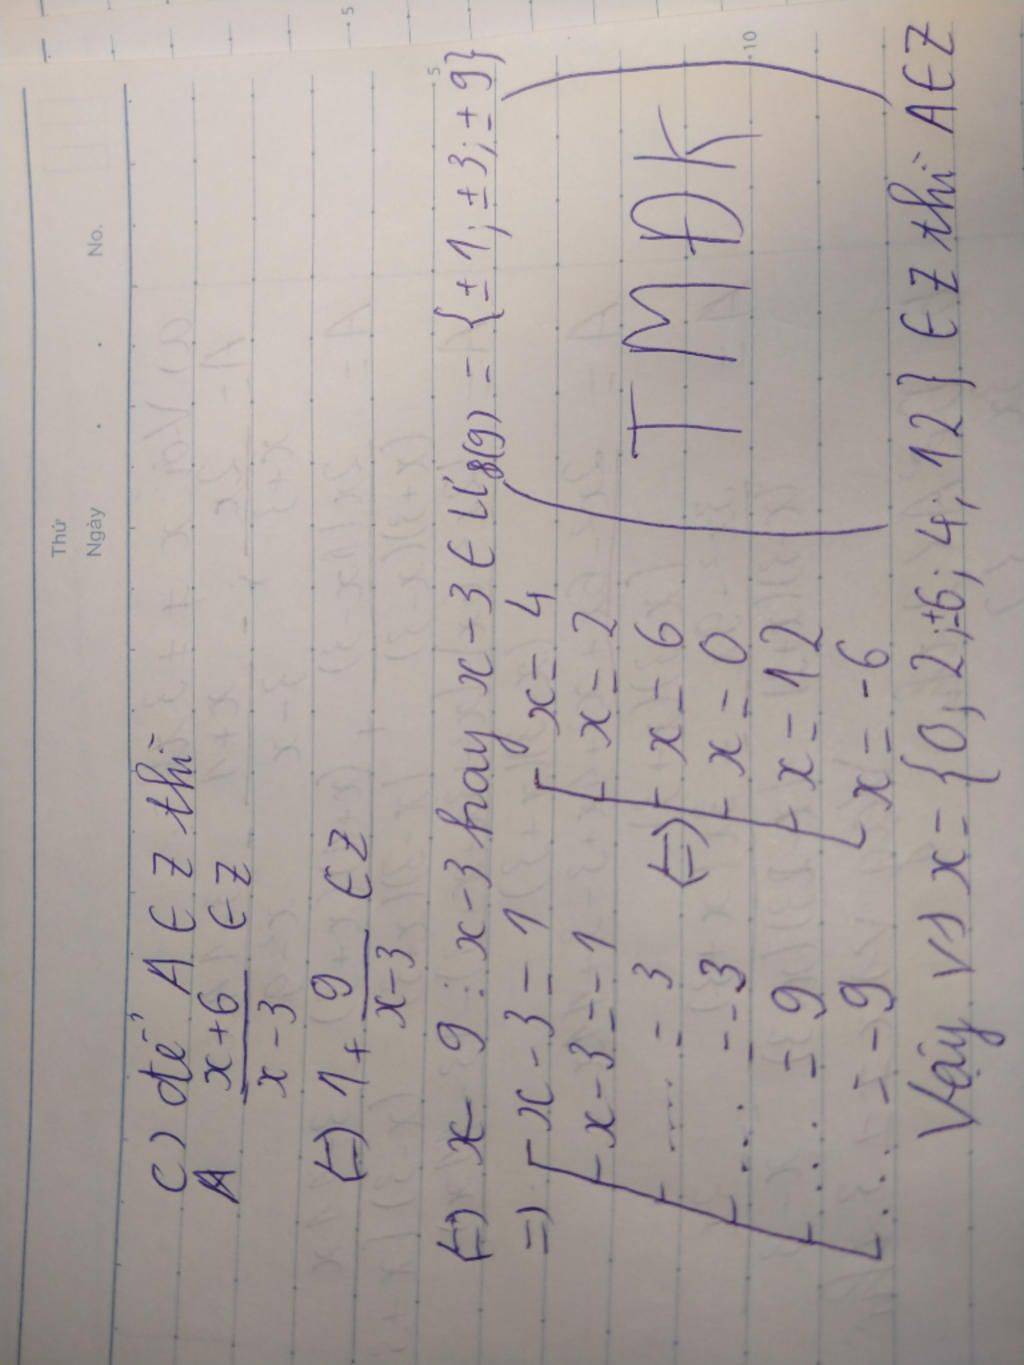 Thứ
Ngày . . No.
5
c) để A ∈ Z thì
A x+6/x-3 ∈ Z
(=) 1 + 9/x-3 ∈ Z
5
(=) x- 9 ⋮ x-3 hay x-3 ∈ Ư(9) = {±1; ±3; ±9}
=) [x-3=1 [x=4
[x-3=-1 [x=2
[.... = 3 (=) [x=6 TMĐK
[... =-3 [x=0
10
[... = 9 [x=12
[... =-9 [x=-6
Vậy vs x={0; 2; ±6; 4; 12} ∈ Z thì A∈Z